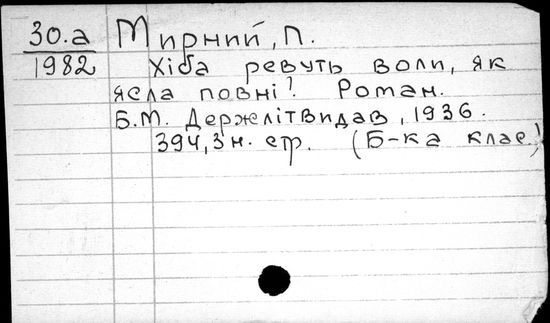 30.а Мирний, П.
1982 Хіба ревуть воли, як
ясла повні? Роман.
Б.М. Держлітвидав, 1936.
394, 3 н. стр. (Б-ка клас.)